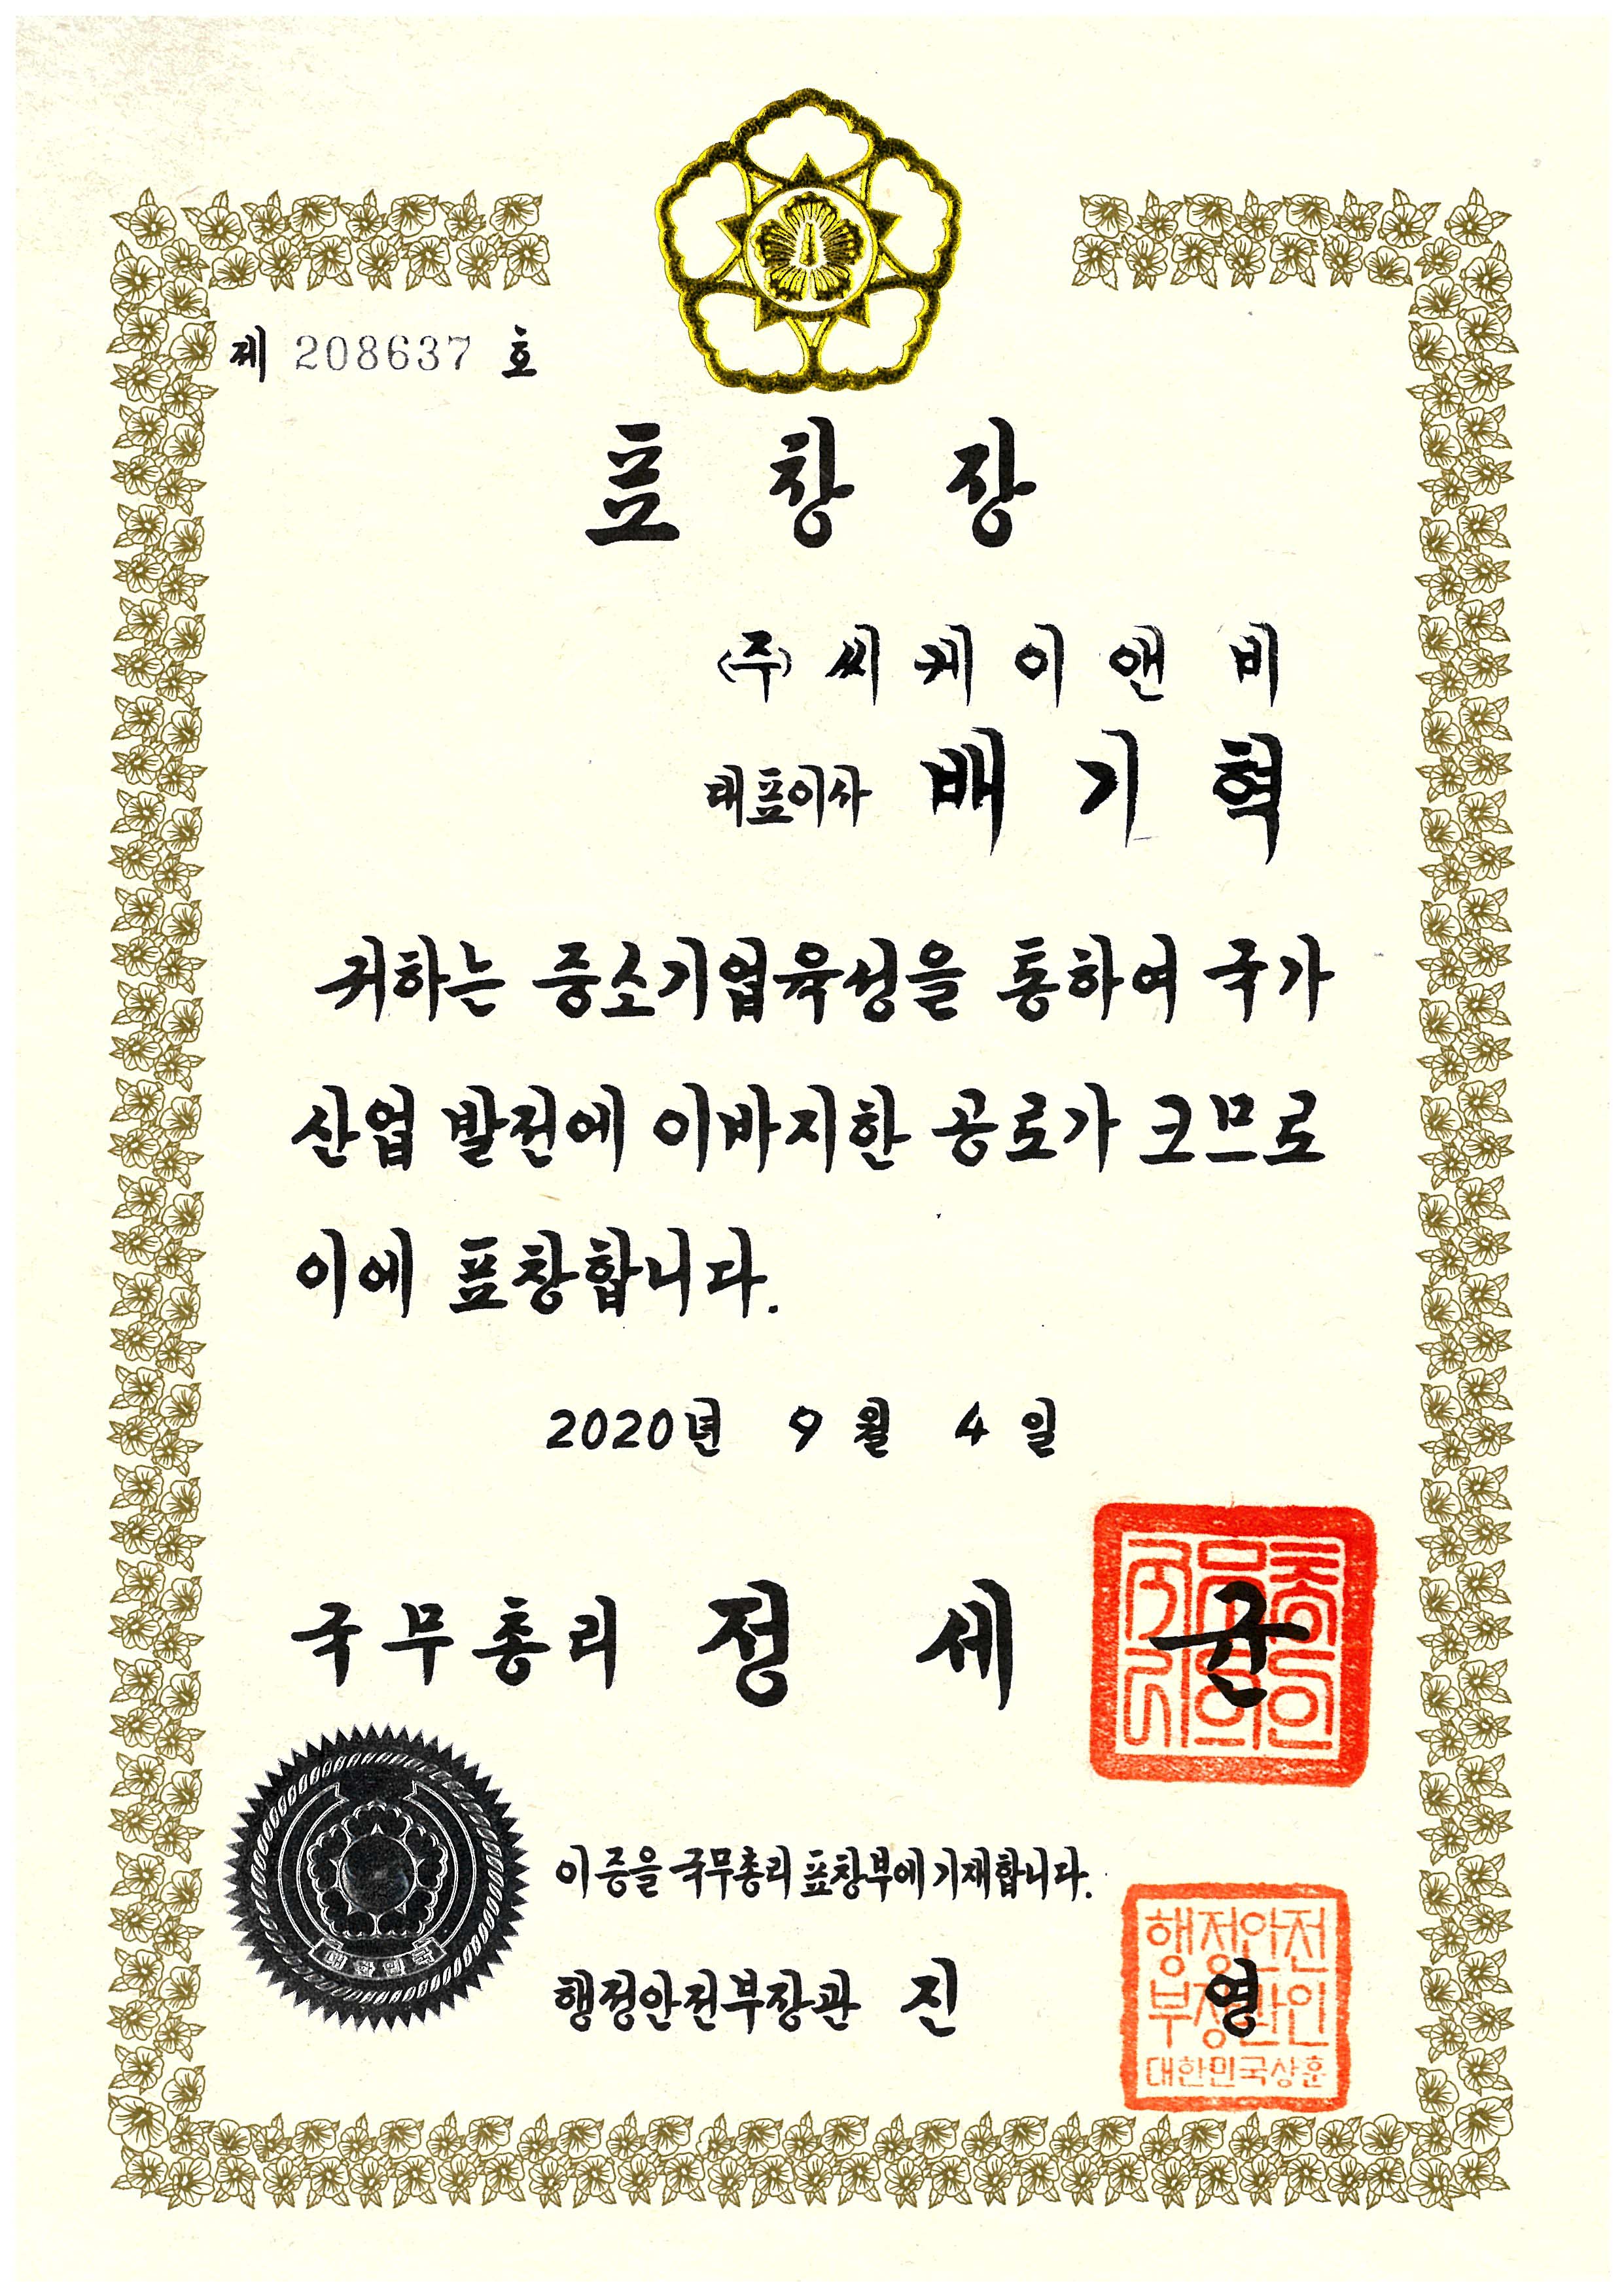 제 208637 호
표 창 장
(주) 씨 케 이 앤 비
대표이사 배 기 혁
귀하는 중소기업육성을 통하여 국가
산업 발전에 이바지한 공로가 크므로
이에 표창합니다.
2020년 9 월 4 일
국 무 총 리 정 세 균
국무총리의인
대한민국
이 증을 국무총리 표창부에 기재합니다.
행정안전부장관 진 영
행정안전
부장관인
대한민국상훈